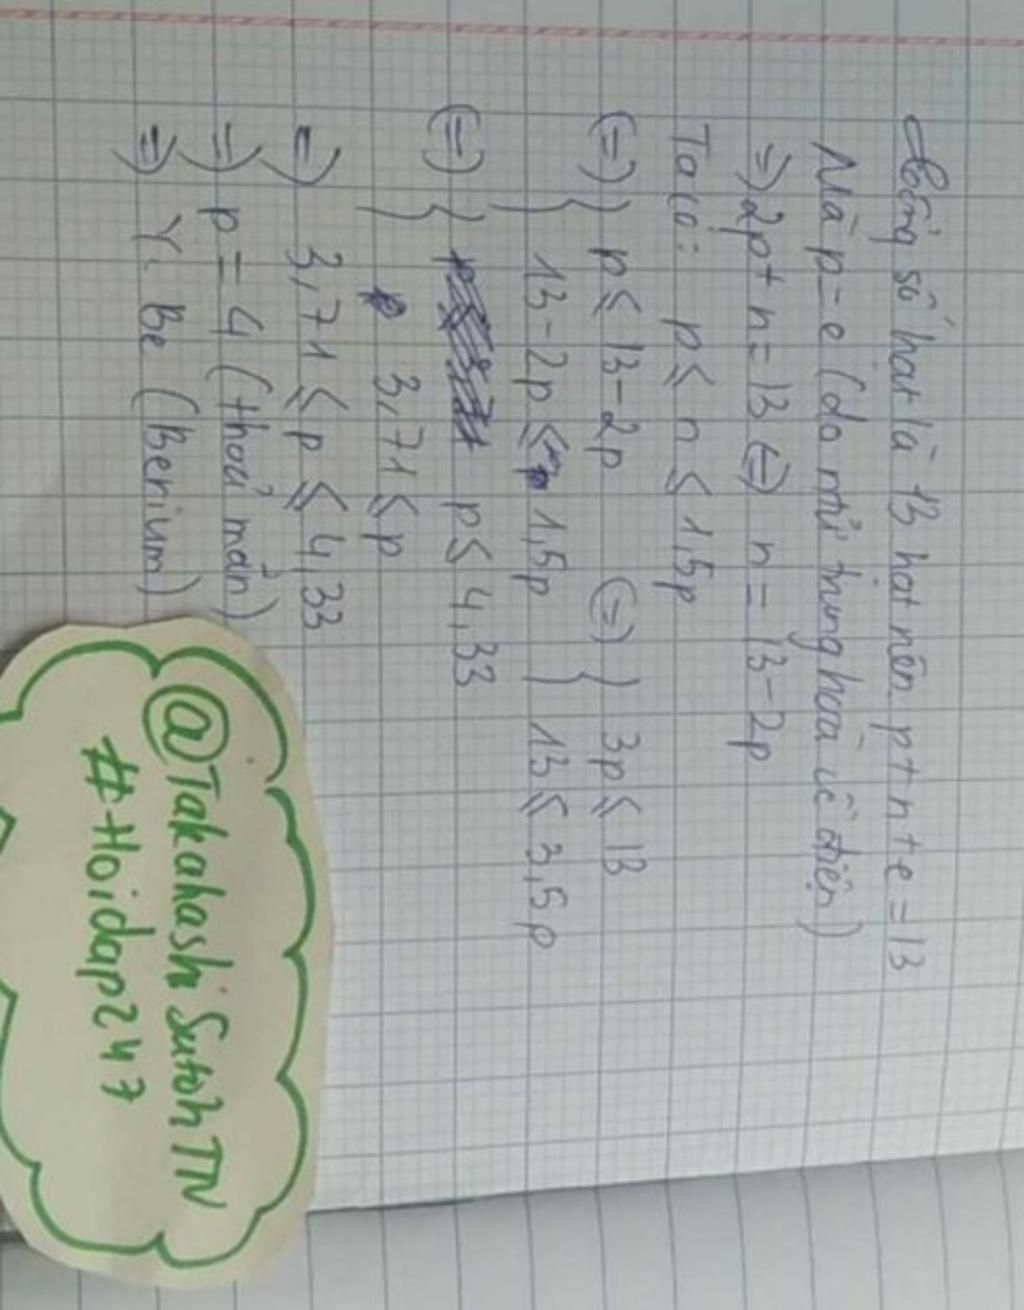 Tổng số hạt là 13 hạt nên p+n+e=13
Mà p=e (do ntử trung hoà về điện)
=> 2p+n=13 <=> n=13-2p
Ta có: p ≤ n ≤ 1,5p
(=) { p ≤ 13-2p (=) { 3p ≤ 13
{ 13-2p ≤ 1,5p { 13 ≤ 3,5p
(=) { p ≤ 4,33
{ 3,71 ≤ p
=) 3,71 ≤ p ≤ 4,33
=) p=4 (thoả mãn)
=) Y: Be (Berium)
@Takahashi Sutoh TN
#Hoidap247